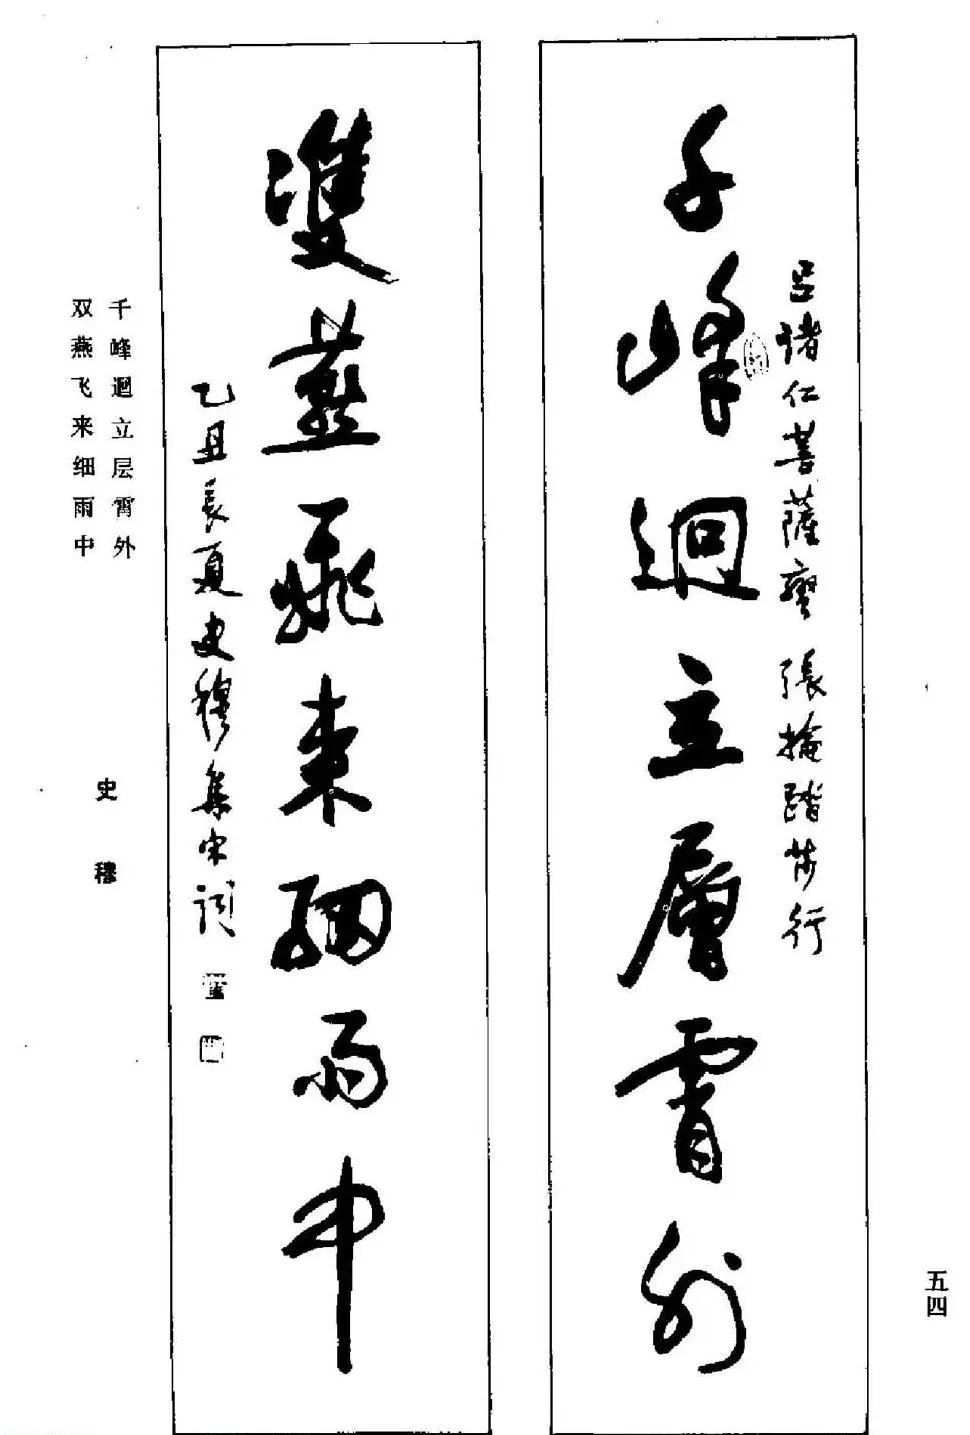 千峰迥立層霄外
呂渚仁菩薩蠻 張掄踏莎行
雙燕飛來細雨中
乙丑長夏史穆集宋詞
千峰迥立层霄外
双燕飞来细雨中
史穆
五四